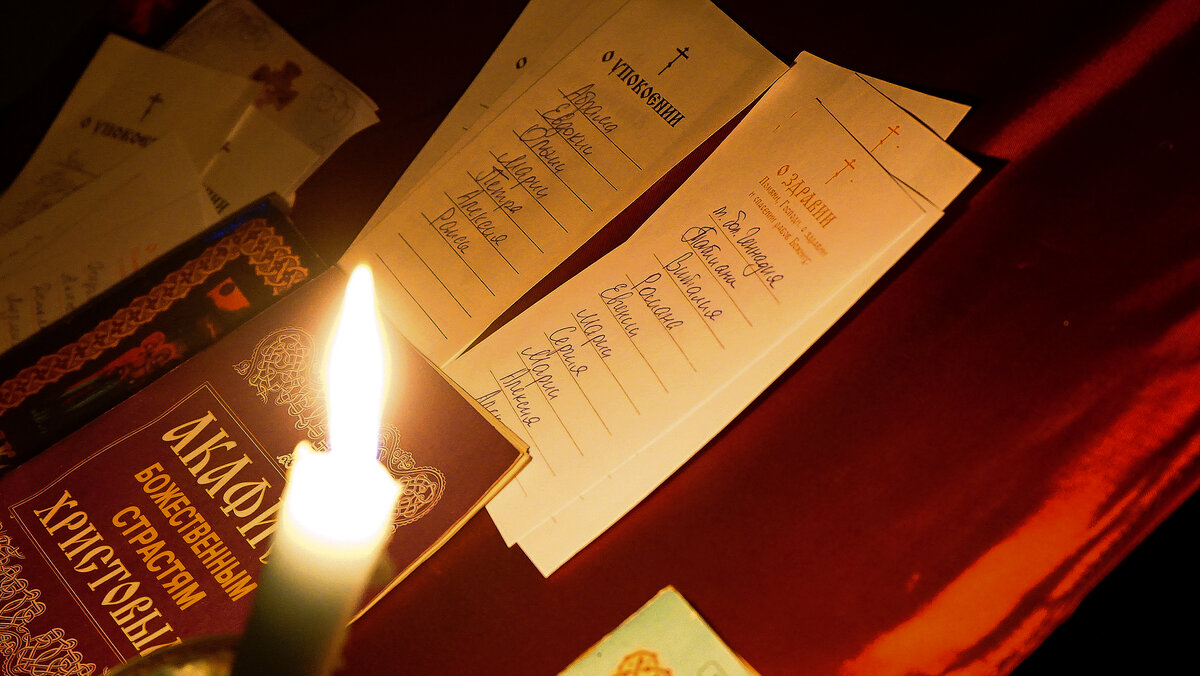 О УПОКОЕНИИ
О УПОКОЕНИИ
Аврама
Евдокии
Марии
Петра
Алексия
Раисы
О ЗДРАВИИ
Помяни, Господи, о здравии
и спасении рабов Божиих:
т. бол. Геннадия
Виталия
Романа
Евгении
Марии
Сергия
Марии
Алексия
АКАФИ
БОЖЕСТВЕННЫМ
СТРАСТЯМ
ХРИСТОВЫМ